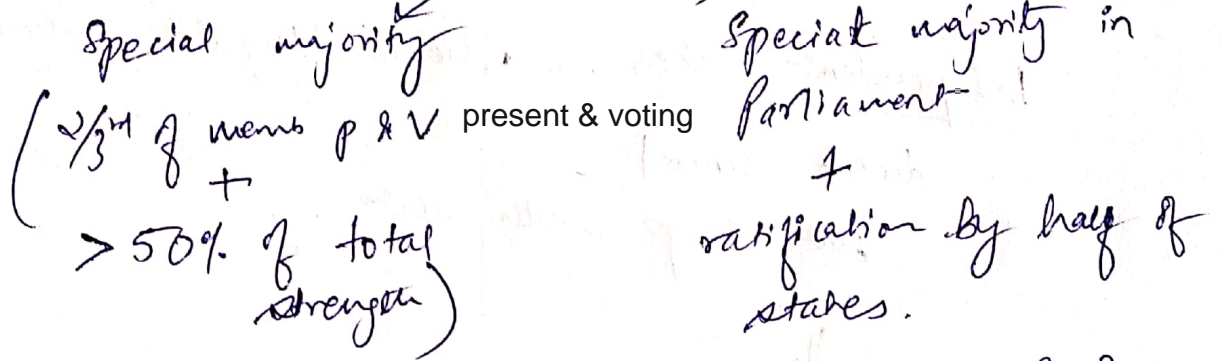 Special majority
(2/3rd of memb p & V present & voting
+
> 50% of total
strength)
Special majority in
Parliament
+
ratification by half of
states.